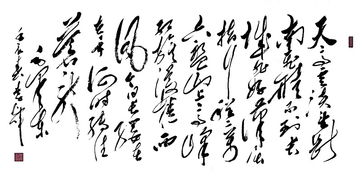 天高云淡望断
南飞雁不到长
城非好汉屈
指行程二万
六盘山上高峰
红旗漫卷西
风今日长缨在
手何时缚住
苍龙
毛泽东